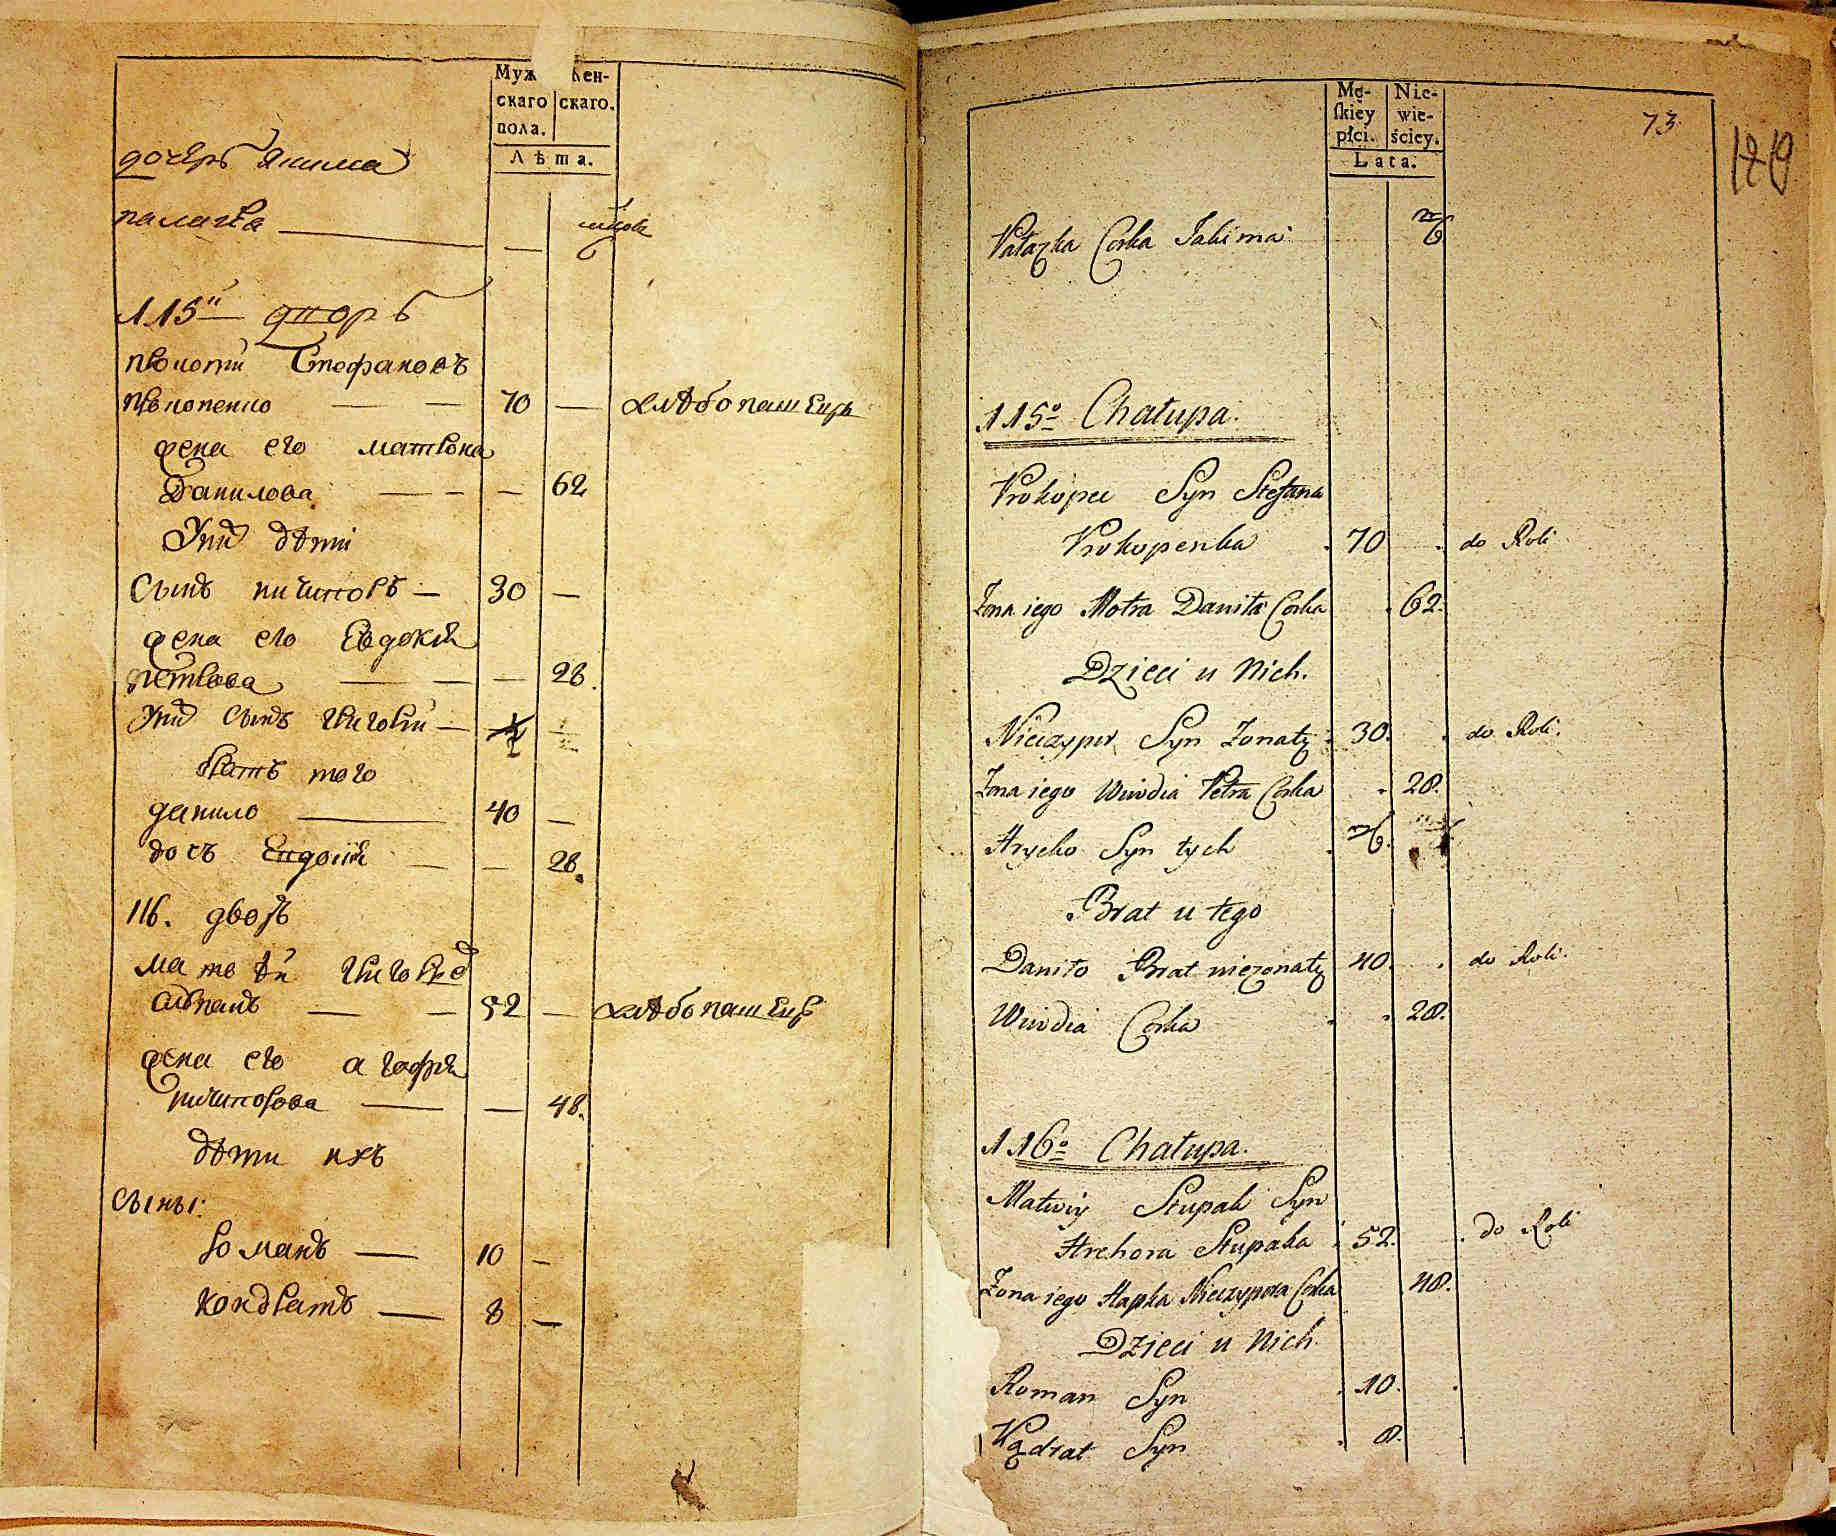 Муж Жен-
скаго скаго.
пола.
Лѣта.
дочерь Якима
палажка
115й дворъ
прокопий Стефановъ
прокопенко — — 70 — хлѣбопашецъ
жена его матрона
Данилова — — — 62
У них дѣти
Сынъ ничипоръ — 30 —
жена его Евдокия
петрова — — — 28
У них сынъ григорий —
братъ того
данило — 40 —
дочъ Евдокия — — 28.
116. дворъ
матвѣй григорiев
ступакъ — — 52 — хлѣбопашецъ
жена его агафия
ничипорова — — 48.
дѣти ихъ
сыны:
романъ — 10 —
кондратъ — 8 —
Mę- Nie-
skiey wie-
płci. ściey.
Lata.
73
Pałazka Corka Jakima
115o Chałupa.
Prokopei Syn Stefana
Prokopenka 70 do Roli
Żona iego Motra Daniła Corka 62.
Dzieci u Nich.
Nieczypor Syn Żonaty 30. do Roli.
Żona iego Wiwdia Petra Corka 28.
Hryćko Syn tych
Brat u tego
Daniło Brat nieżonaty 40. do Roli.
Wiwdia Corka 28.
116o Chałupa.
Matwiy Stupak Syn
Hrehora Stupaka 52. do Roli
Żona iego Hapka Nieczypora Corka 48.
Dzieci u Nich
Roman Syn 10.
Kądrat Syn 8.